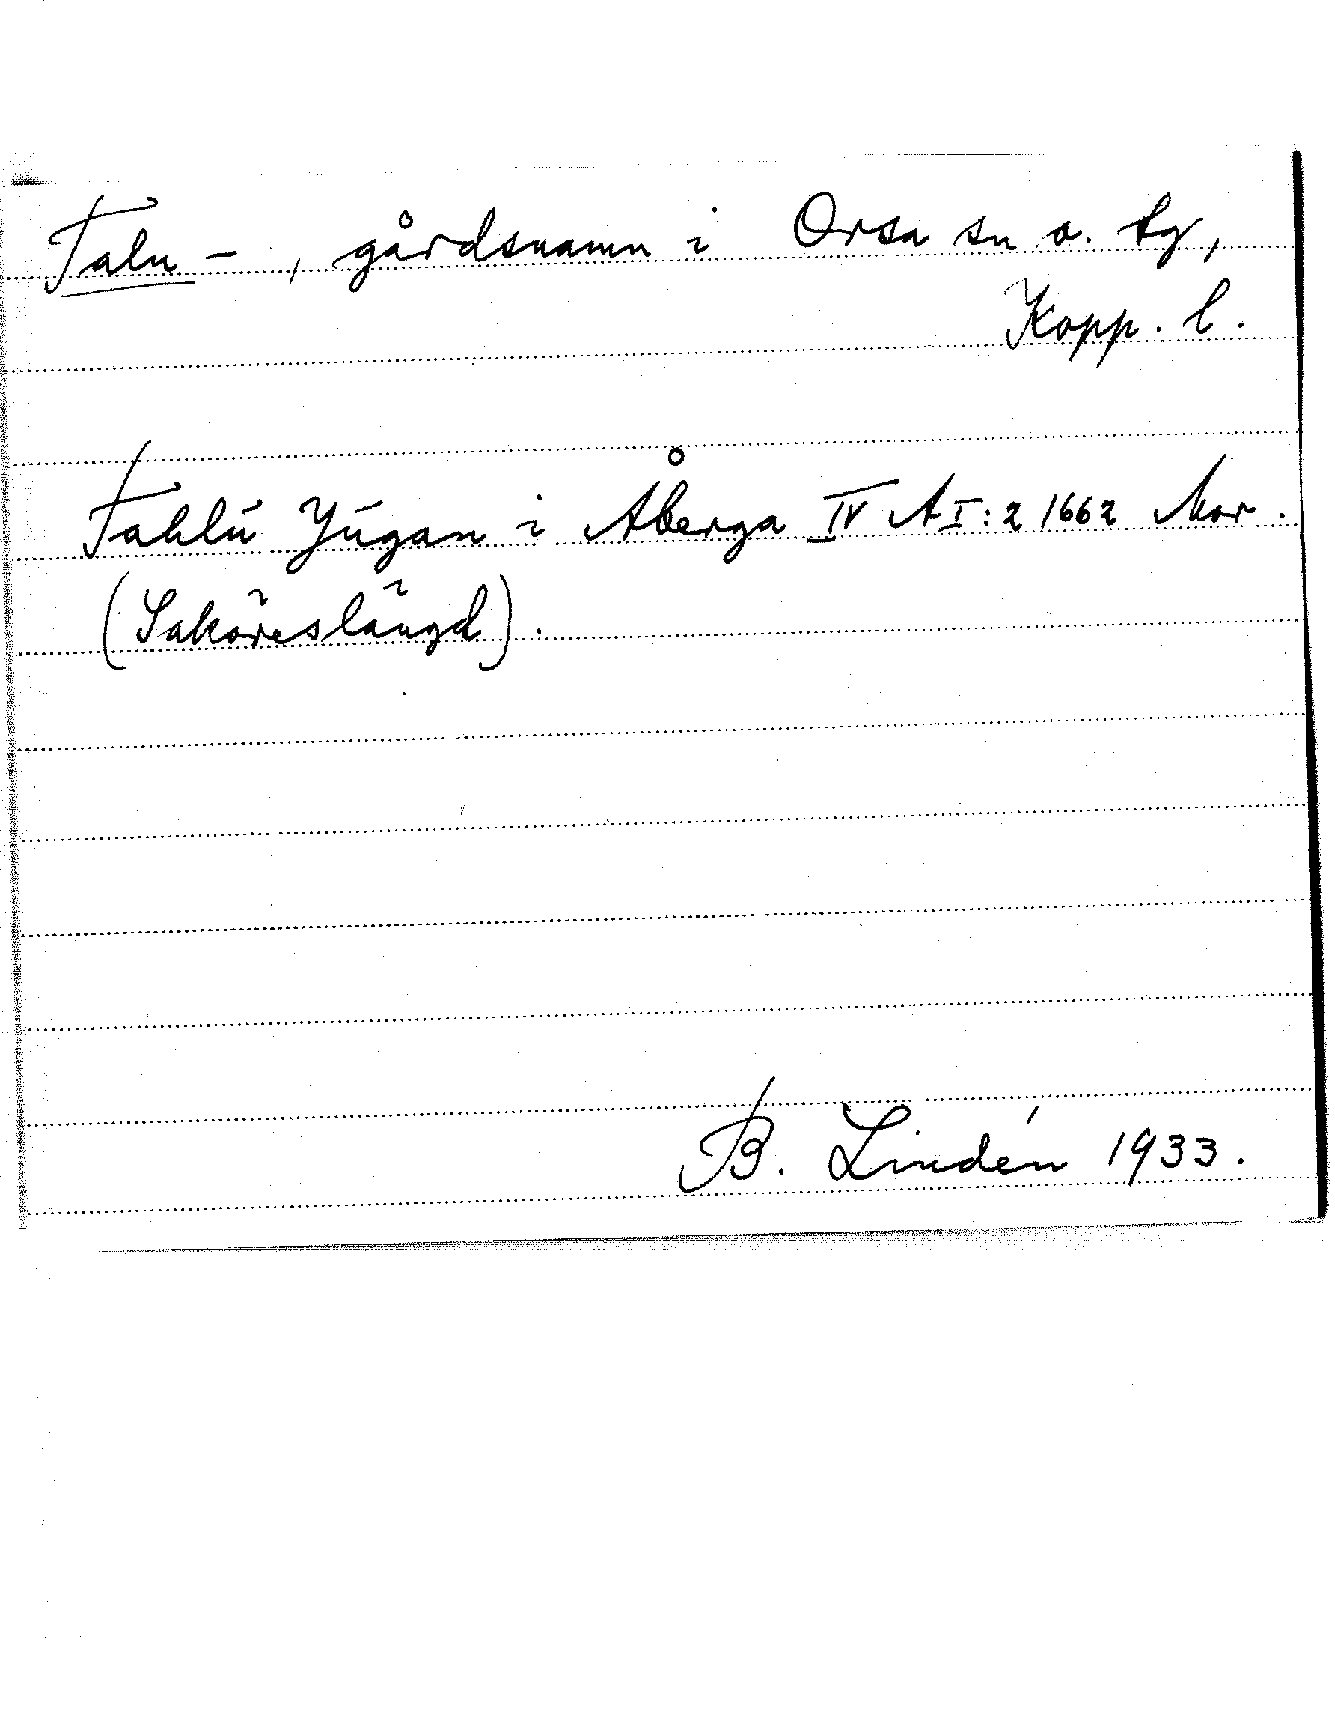 Talu - , gårdsnamn i Orsa sn o. tg,
Kopp. l.
Tahlú Júgan i Åberga IV A I: 2 1662 Mor.
(Saköreslängd).
B. Lindén 1933.